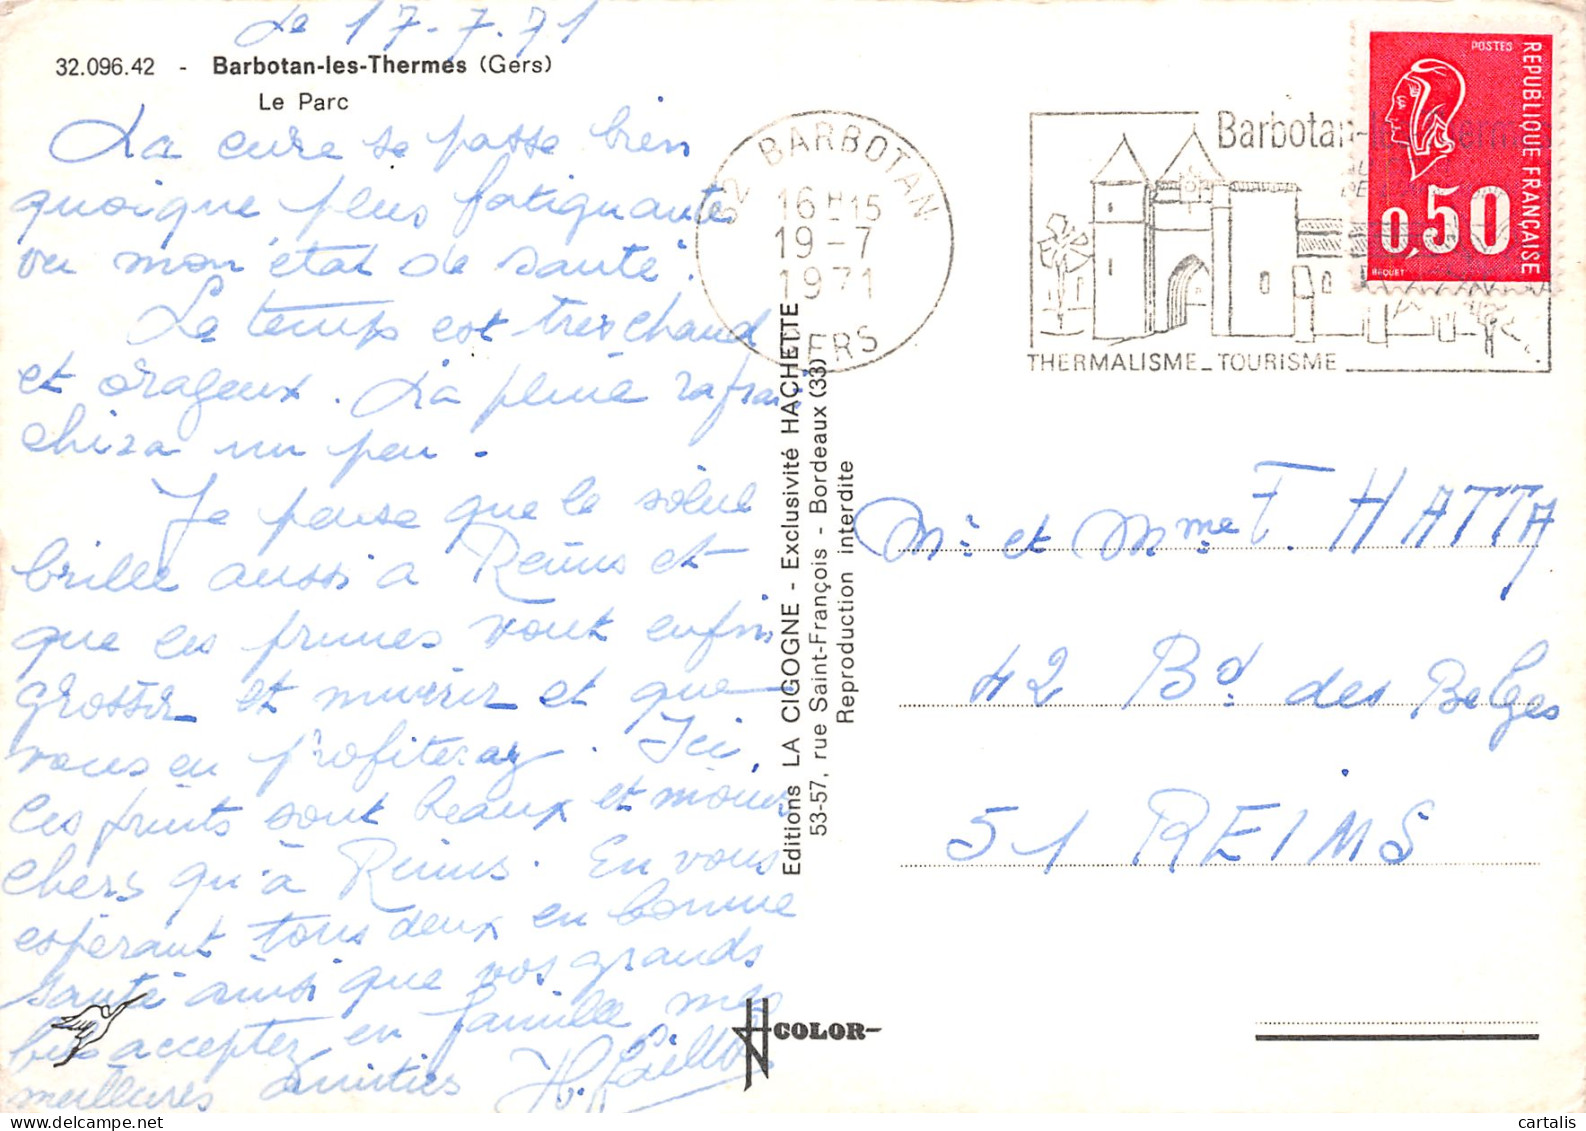 Le 17-7-71
32.096.42 - Barbotan-les-Thermes (Gers)
Le Parc
La cure se passe bien
quoique plus fatiguante
vu mon état de santé.
Le temps est très chaud
et orageux. La pluie rafrai
chira un peu.
Je pense que le soleil
brille aussi à Reims et
que les prunes vont enfin
grossir et murir et que
vous en profiterez. Ici,
les fruits sont beaux et moins
chers qu'à Reims. En vous
espérant tous deux en bonne
santé ainsi que vos grands
acceptez en famille mes
meilleures amitiés
32 BARBOTAN
16 H 15
19-7
1971
GERS
Barbotan-les-Thermes
THERMALISME_TOURISME
POSTES
REPUBLIQUE FRANÇAISE
0,50
BEQUET
Editions LA CIGOGNE - Exclusivité HACHETTE
53-57, rue Saint-François - Bordeaux (33)
Reproduction interdite
Mr et Mme F. HATTA
42 Bd des Belges
51 REIMS
COLOR
cartalis